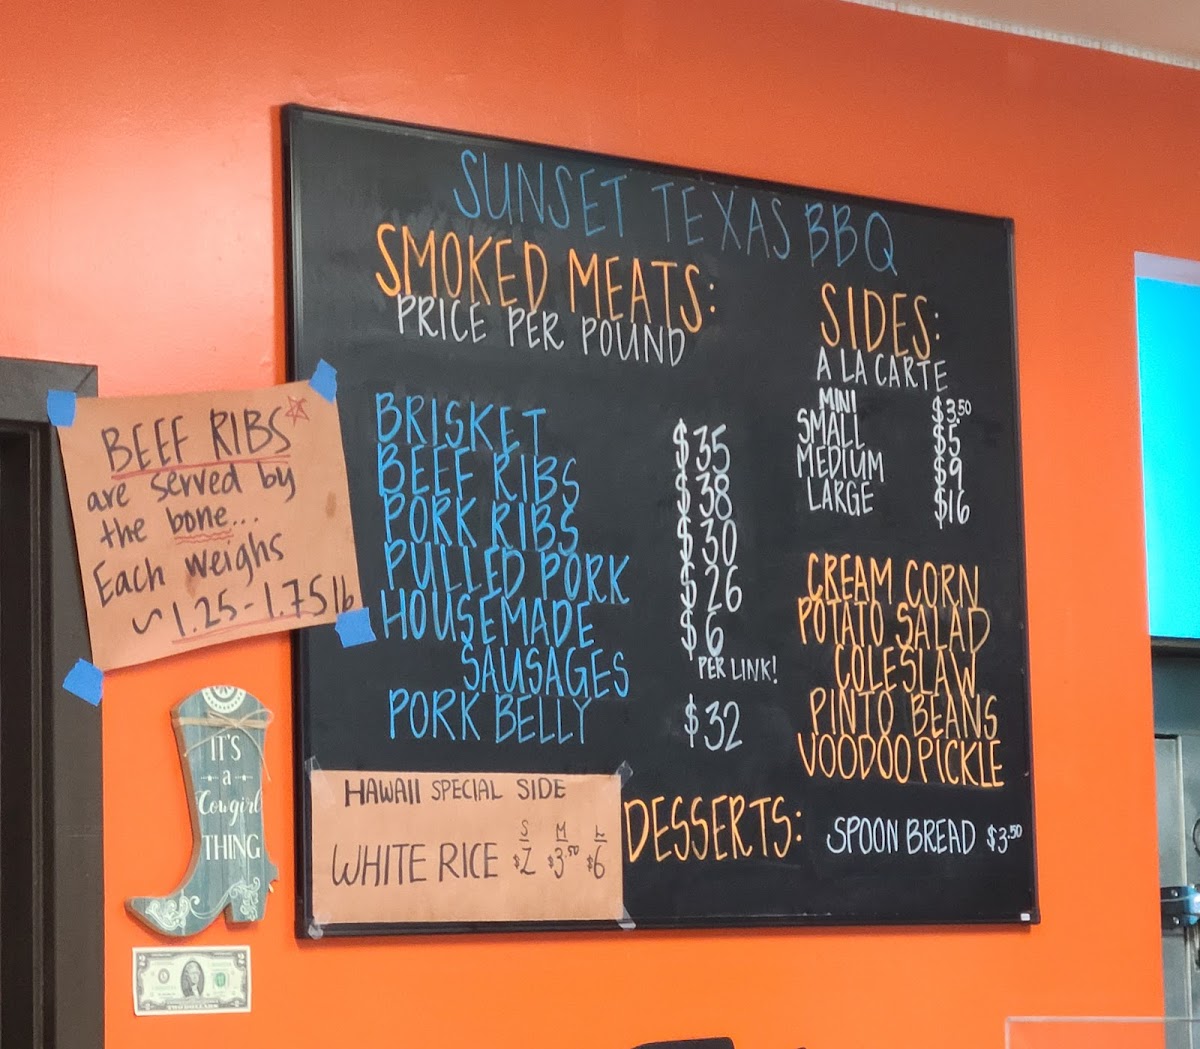 SUNSET TEXAS BBQ
SMOKED MEATS:
PRICE PER POUND
BRISKET $35
BEEF RIBS $38
PORK RIBS $30
PULLED PORK $26
HOUSEMADE $6
SAUSAGES PER LINK!
PORK BELLY $32
SIDES:
A LA CARTE
MINI $3.50
SMALL $5
MEDIUM $9
LARGE $16
CREAM CORN
POTATO SALAD
COLESLAW
PINTO BEANS
VOODOO PICKLE
DESSERTS: SPOON BREAD $3.50
HAWAII SPECIAL SIDE
S M L
WHITE RICE $2 $3.50 $6
BEEF RIBS
are served by
the bone...
Each weighs
~1.25-1.75lb
IT'S
a
Cowgirl
THING
TWO DOLLARS